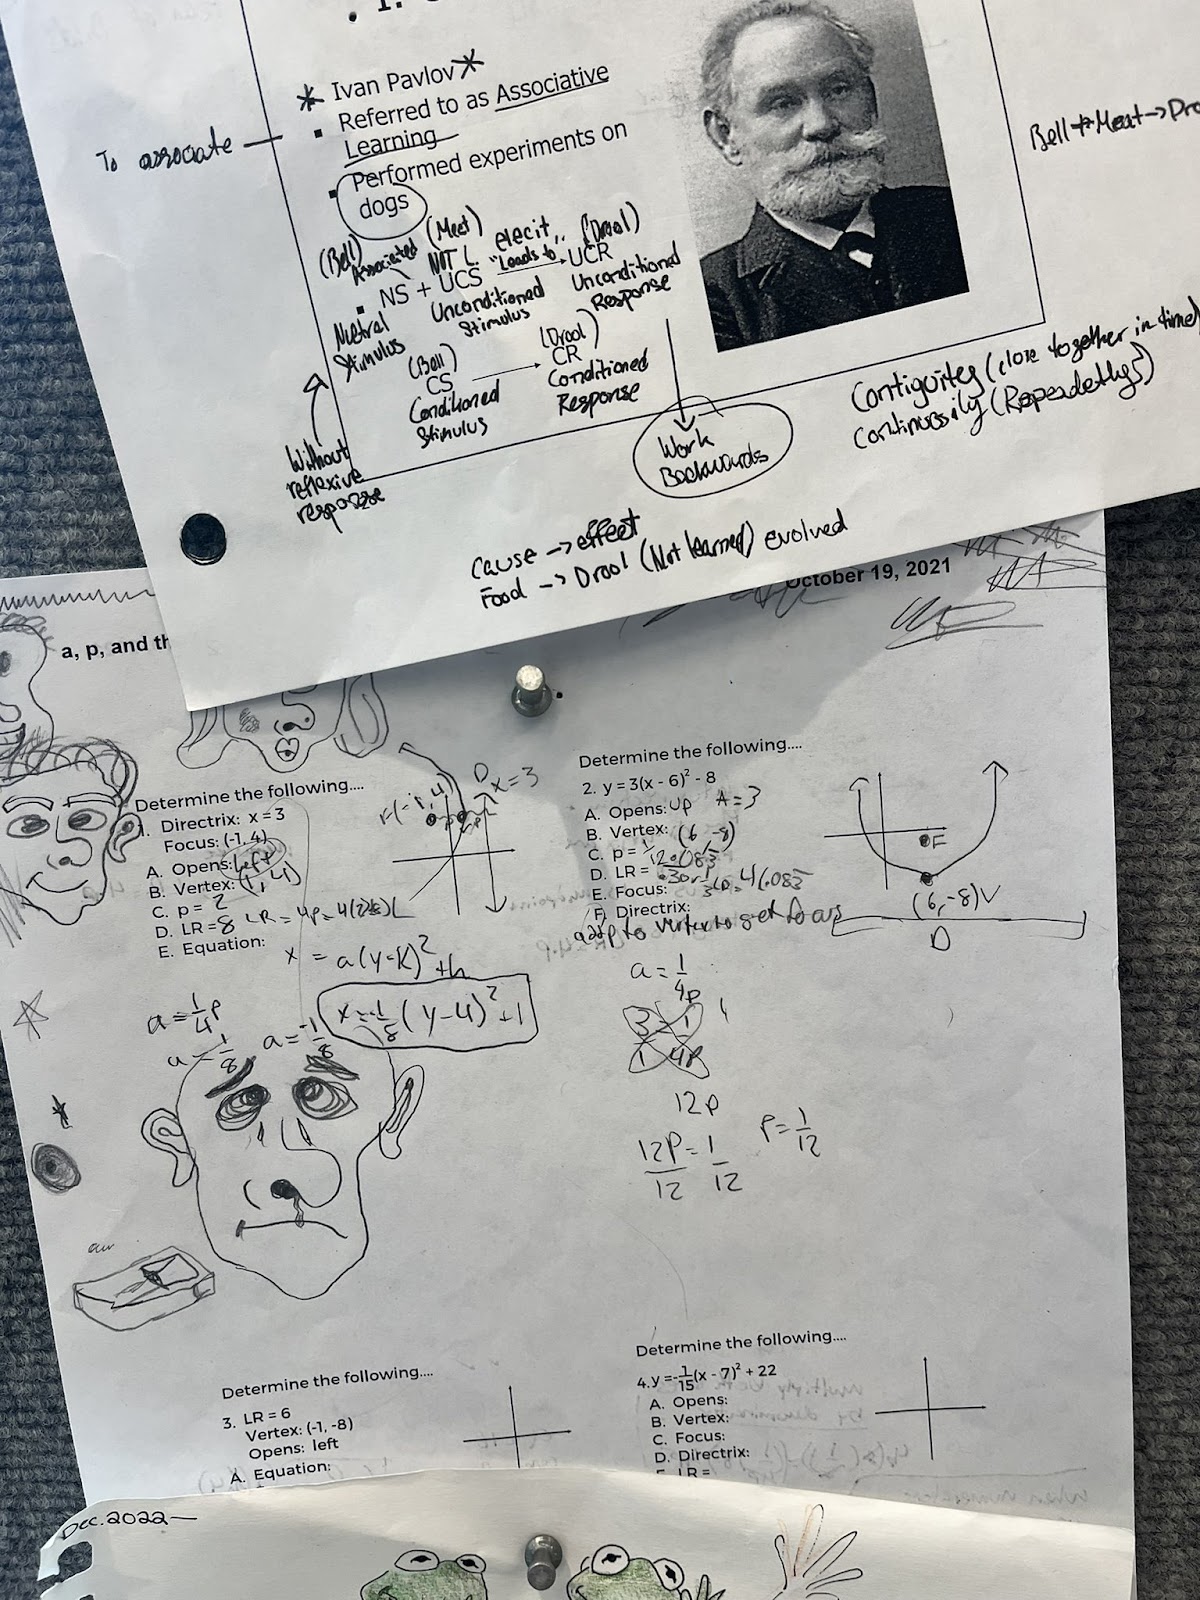 * Ivan Pavlov *
▪ Referred to as Associative
Learning
▪ Performed experiments on
dogs
To associate
Bell + Meat →
(Bell)
Associated
(Meet)
NOT L.
elecit
"Leads to"
(Drool)
▪ NS + UCS → UCR
Nuetral
Stimulus
Unconditioned
Stimulus
Unconditional
Response
(Bell)
CS
Conditioned
Stimulus
(Drool)
CR
Conditioned
Response
Without
reflexive
response
Work
Backwards
Contiguitey (close together in time)
Cause → effect
Food → Drool (Not learned) evolved
October 19, 2021
a, p, and th
Determine the following....
1. Directrix: x = 3
Focus: (-1, 4)
A. Opens: left
B. Vertex: (1, 4)
C. p = 2
D. LR = 8 LR = 4p = 4(2)
E. Equation:
D x = 3
x = a(y-k)² + h
x = -1/8 (y-4)² + 1
a = 1/4p
a = 1/8 a = -1/8
Determine the following....
2. y = 3(x - 6)² - 8
A. Opens: up A = 3
B. Vertex: (6, -8)
C. p = 1/12 .083
D. LR =
E. Focus:
F. Directrix:
add p to vertex to get focus
F
(6, -8) V
D
a = 1/4p
3 = 1
1 4p
12p
12p = 1
12 12
P = 1/12
Determine the following....
3. LR = 6
Vertex: (-1, -8)
Opens: left
A. Equation:
Determine the following....
4. y = -1/15(x - 7)² + 22
A. Opens:
B. Vertex:
C. Focus:
D. Directrix:
E. LR =
Dec. 2022—